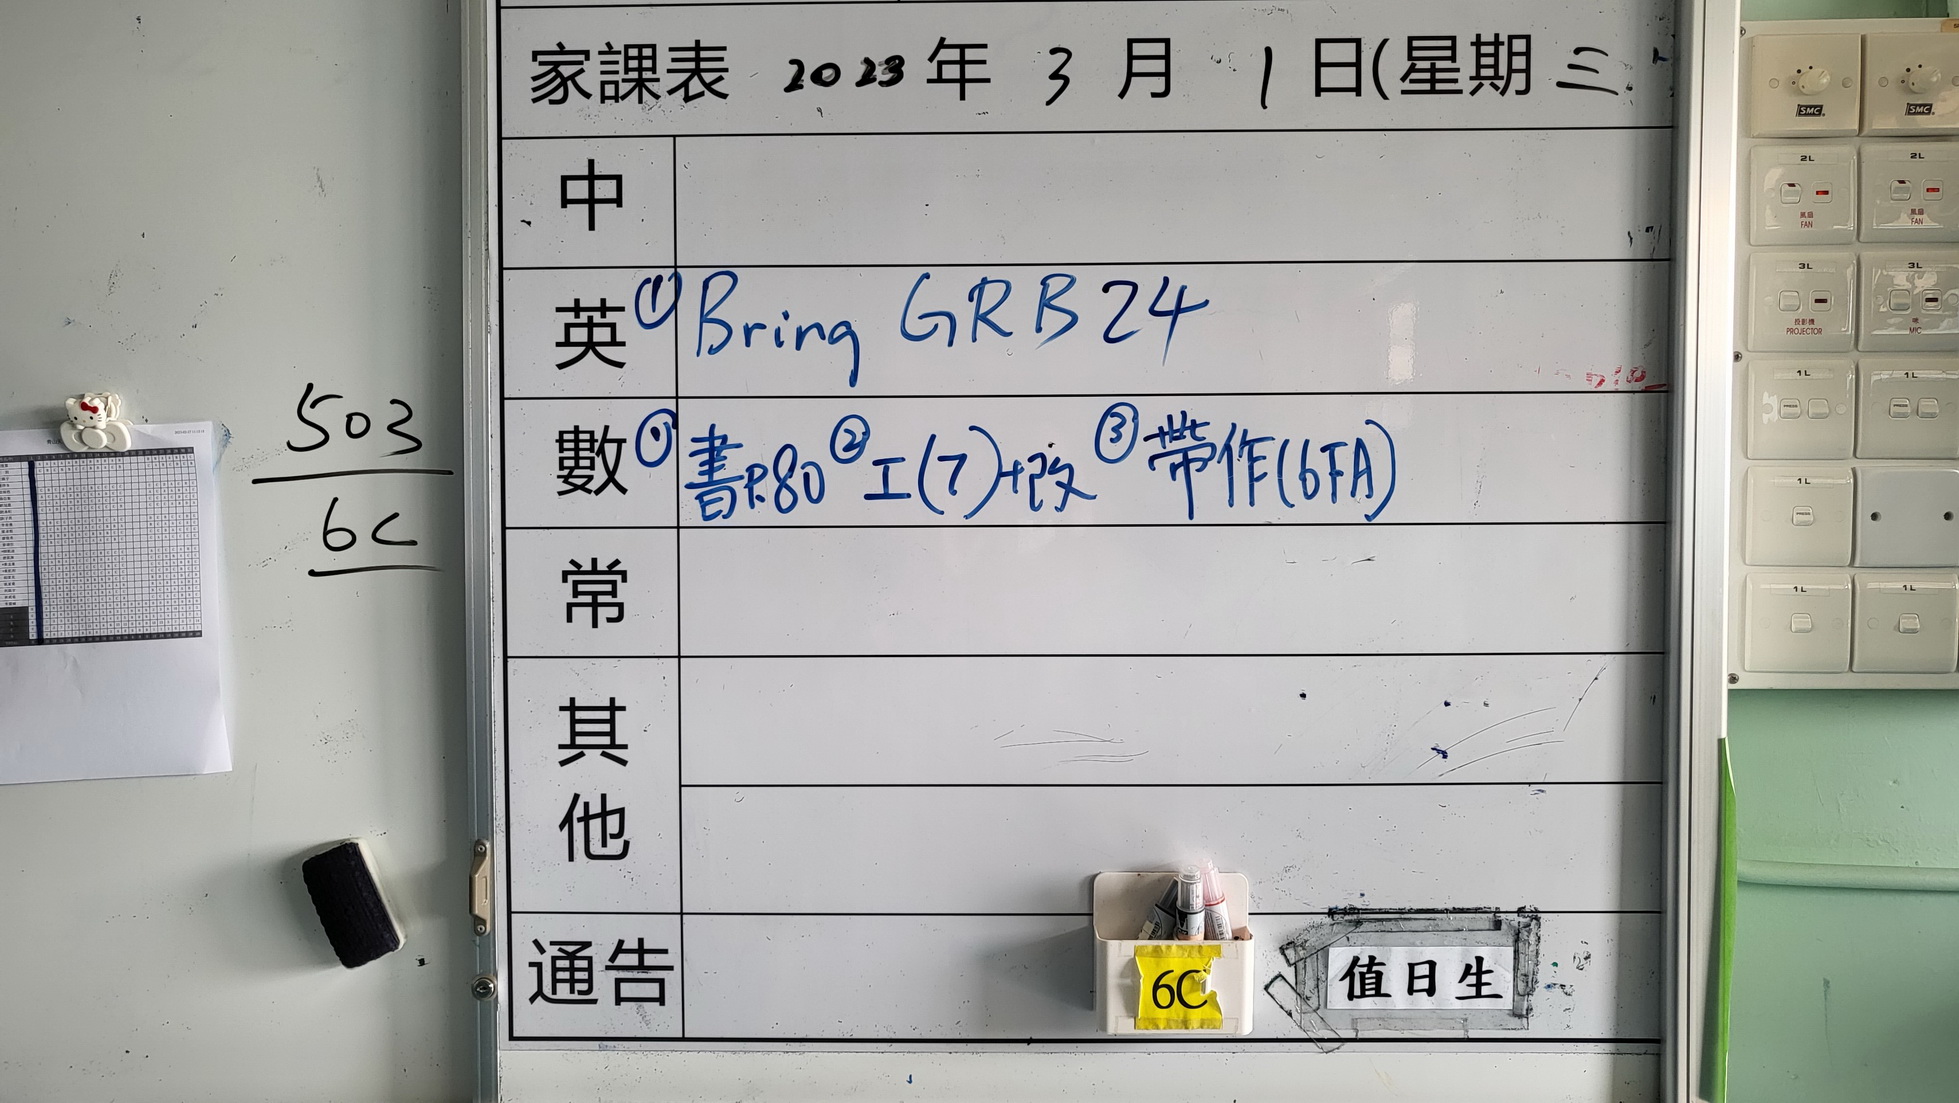 家課表 2023 年 3 月 1 日(星期 三
中
英 ① Bring GRB 24
數 ① 書P.80 ② 工(7)+改 ③ 帶作(6FA)
常
其他
通告
6C
值日生
503
6C
SMC
SMC
2L
風扇
FAN
2L
風扇
FAN
3L
投影機
PROJECTOR
3L
咪
MIC
1L
PRESS
1L
PRESS
1L
PRESS
1L
1L